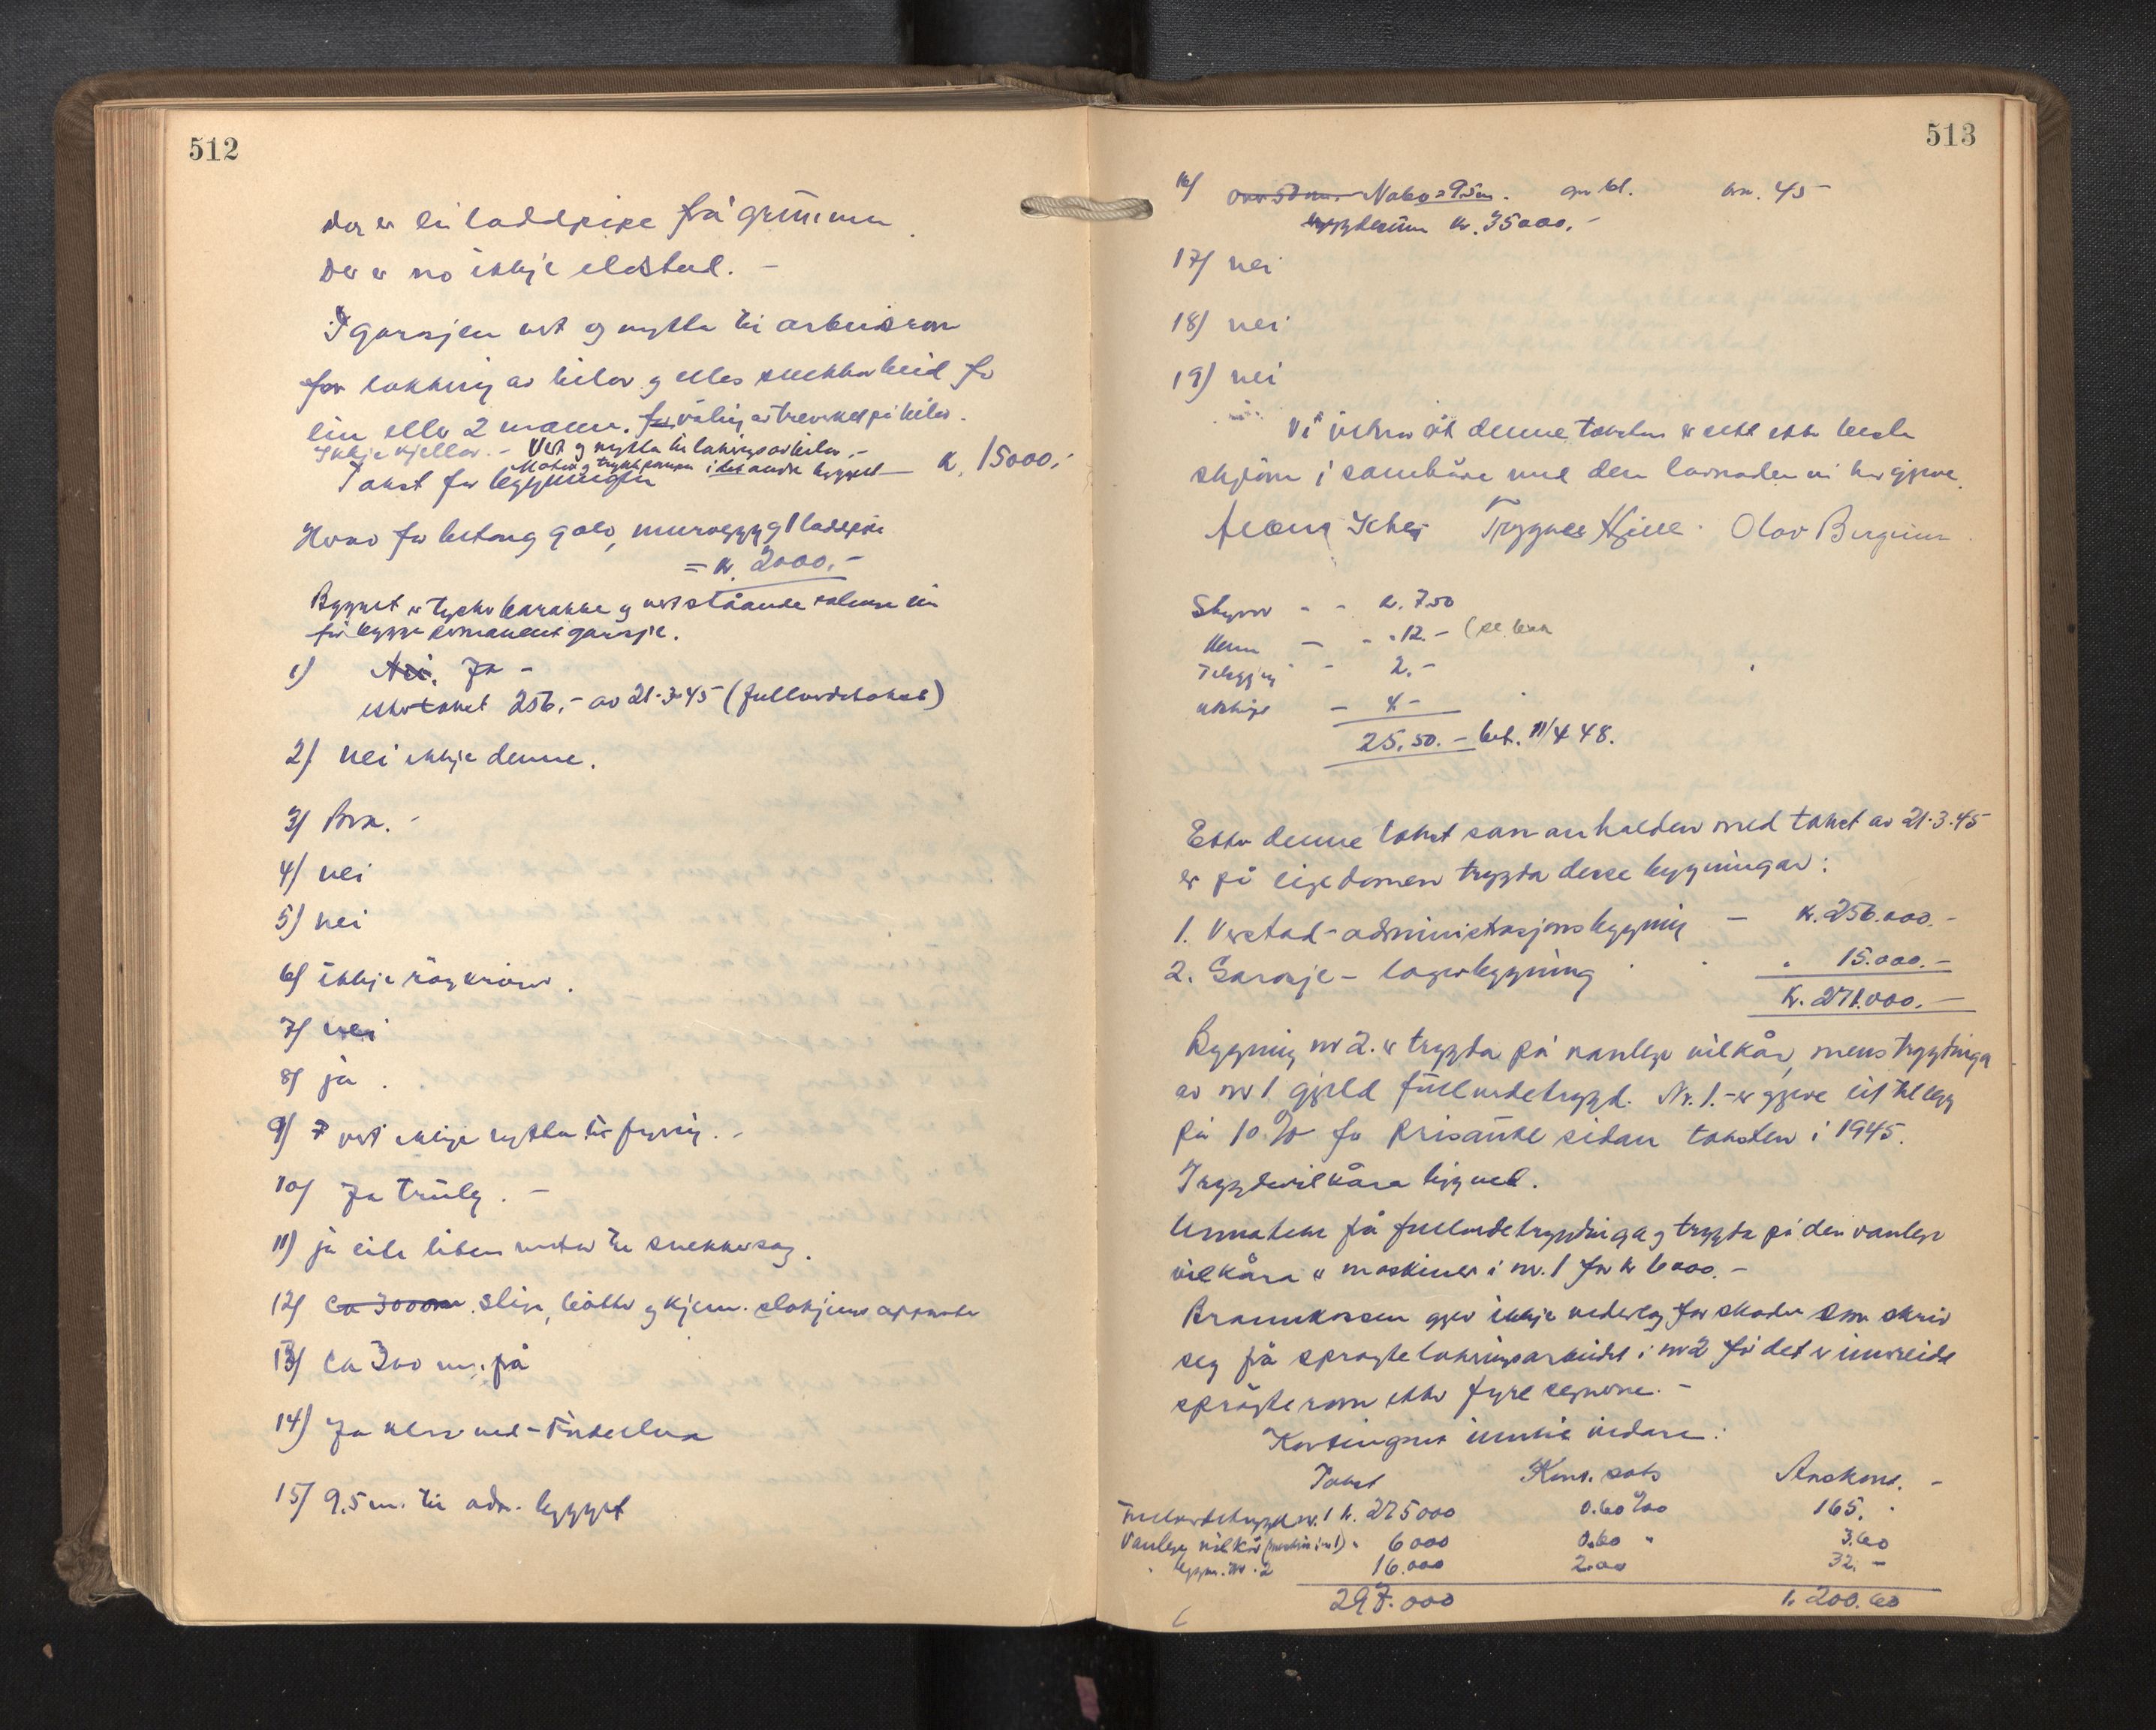 512
Der er ei laddpipe frå grunnen.
Der er no ikkje eldstad. -
I garasjen vert og nytta til arbeidsrom
for lakkering av bilar og elles snekkarbeid for
ein eller 2 mann. for måling av treverket på bilar.
Ikkje kjellar. - Vert og nytta til lakeringsarbeider. -
Motor og trykkpumpa i det andre bygget
Takst for bygningen kr. 15000.-
Herav for betong golv, murvegg og 1 laddpipe
= kr. 2000.-
Bygget er tyskarbarakke og vert ståande så lenge ein
får bygge permanent garasje.
1) Nei. Ja -
etter takst 256.- av 21-3-45 (fullverdetakst)
2) nei ikkje denne.
3) Bra. -
4) nei
5) nei
6) ikkje røykrør.
7) nei
8) ja.
9) vert ikkje nytta til fyring. -
10) Ja truleg. -
11) ja eit liten motor til snekkersag.
12) ca 3000m. stige, bøtter og kjem. slokjings apparater
13) Ca 300 m. frå
14) Ja
15) 9,5 m. til adm. bygget
513
16) over 50 m. Nabo = 9.5m. gr. 61. br. 45
trygdesum kr. 35000.-
17) nei
18) nei
19) nei
Vi vitnar at denne taksten er sett etter beste
skjøn i samhøve med den lovnaden vi har gjeve.
Trygve Olav
Skyss - - kr. 7.50
- - " 12.-
Tillegg - 2.-
- 4.-
25.50.- bet. 11/4 48.
Etter denne takst saman halden med takst av 21-3-45
er på eigedomen trygda desse bygningar:
1. Verstad-administrasjonsbygning - kr. 256.000.-
2. Garasje- lagerbygning " 15.000.-
kr. 271.000.-
Bygning nr 2. er trygda på vanlege vilkår, mens trygdinga
av nr 1 gjeld fullverdetrygd. Nr. 1.- er gjeve eit tillegg
på 10 % for prisauke sidan taksten i 1945.
Trygdevilkåra ligg ved.
Unnateke frå fullverdetrygdinga og trygda på dei vanlege
vilkåra er maskiner i nr. 1 for kr 6000.-
Brannkassen gjev ikkje vederlag for skader som skriv
seg frå sprøytelakeringsarbeidet i nr 2 før det er innreidd
sprøyterom etter fyresegnene. -
Kontingent vidare:
Takst Kont. sats Årskont. -
Fullverdetrygd nr. 1 kr. 275000 0.60 ‰ 165.-
Vanlege vilkår (maskin i nr 1) " 6000 0.60 " 3.60
" bygn. nr. 2 16.000 2.00 32.-
297.000 kr. 200.60